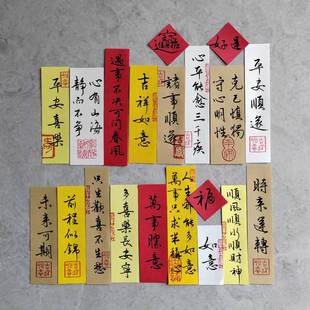 好運
平安喜樂
心有山海
靜而不爭
遇事不決可问春風
吉祥如意
諸事順遂
心平能愈三千疾
克己慎獨
守心明性
平安順遂
未来可期
前程似錦
只生歡喜不生愁
多喜樂長安寧
萬事勝意
人生那能多如意
萬事只求半稱心
福
如意
順風順水順財神
時来運轉